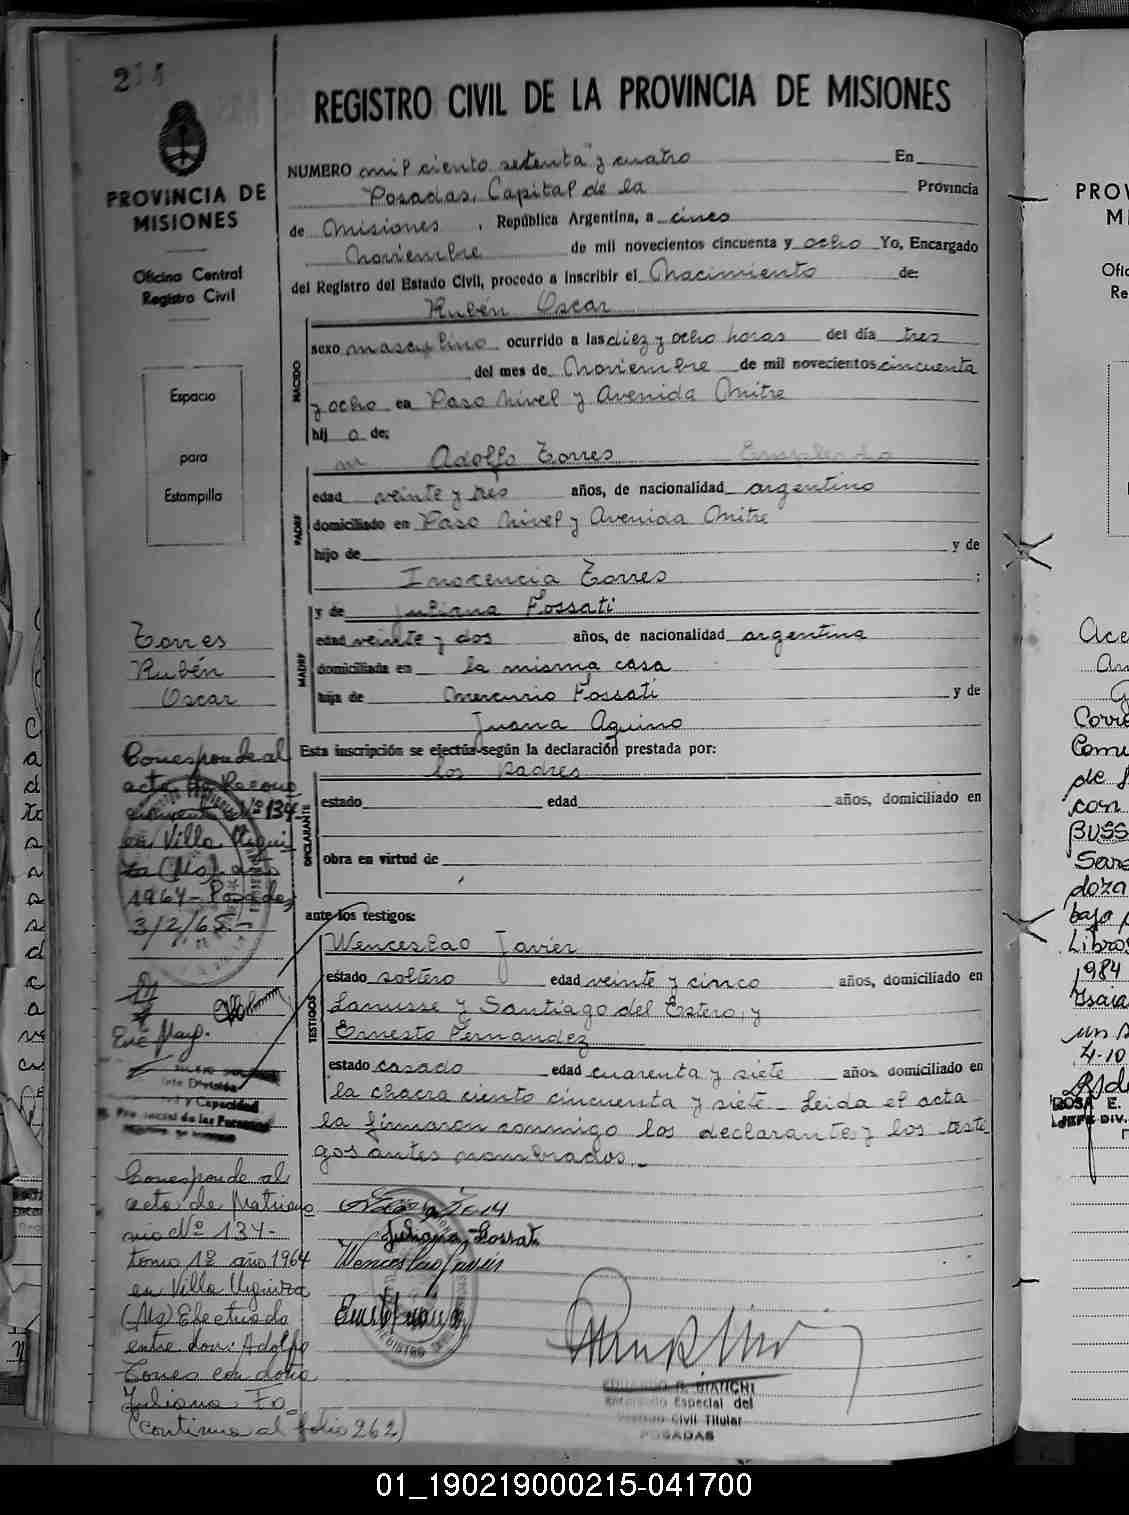 214
PROVINCIA DE
MISIONES
Oficina Central
Registro Civil
Espacio
para
Estampilla
Torres
Rubén
Oscar
Corresponde al
acta de Recono
cimiento Nº 134
en Villa Urqui
za (Ms) año
1964 - Posadas,
3/2/65.-
Corresponde al
acta de Matrimo
nio Nº 134-
tomo 1º año 1964
en Villa Urquiza
(Ms) Efectuado
entre don: Adolfo
Torres con doña
Juliana Fo_
(continua al folio 262)
REGISTRO CIVIL DE LA PROVINCIA DE MISIONES
NUMERO mil ciento setenta y cuatro En
Posadas, Capital de la Provincia
de Misiones, República Argentina, a cinco
Noviembre de mil novecientos cincuenta y ocho Yo, Encargado
del Registro del Estado Civil, procedo a inscribir el Nacimiento de:
Rubén Oscar
NACIDO
sexo masculino ocurrido a las diez y ocho horas del día tres
del mes de Noviembre de mil novecientos cincuenta
y ocho en Paso Nivel y Avenida Mitre
hij o de:
Adolfo Torres Empleado
PADRE
edad veinte y tres años, de nacionalidad argentino
domiciliado en Paso Nivel y Avenida Mitre
hijo de y de
Inocencia Torres ;
y de Juliana Fossati
MADRE
edad veinte y dos años, de nacionalidad argentina
domiciliada en la misma casa
hija de Mercurio Fossati y de
Juana Aquino
Esta inscripción se efectúa según la declaración prestada por:
los padres
DECLARANTE
estado edad años, domiciliado en
obra en virtud de
ante los testigos:
Wenceslao Javier
TESTIGOS
estado soltero edad veinte y cinco años, domiciliado en
Lanusse y Santiago del Estero, y
Ernesto Fernandez
estado casado edad cuarenta y siete años, domiciliado en
la chacra ciento cincuenta y siete - Leida el acta
la firmaron conmigo los declarante y los testi
gos antes nombrados.-
Juliana Fossati
Wenceslao Javier
EDUARDO R. BIANCHI
Encargado Especial del
Registro Civil Titular
POSADAS
01_190219000215-041700